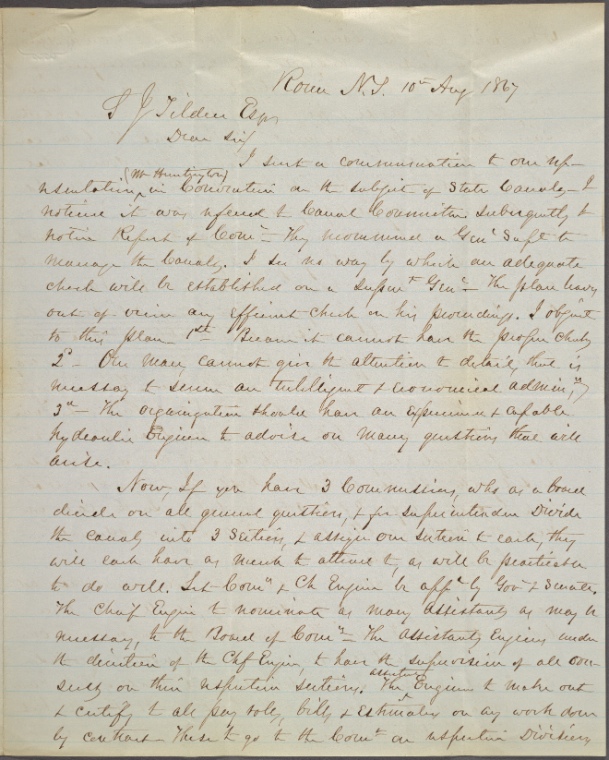 Rome N.Y. 10th Aug 1867
S J Tilden Esqr
Dear Sir
I sent a communication to our rep-
(Mr Huntington)
resentation, in Convention on the subject of State Canals – I
notice it was refered to Canal Committee. Subsequently I
notice Report of Comee – They recommend a Genl Supt to
manage the Canals. I see no way by which an adequate
check will be established on a Supert Genl – The plan leaves
out of view any efficient check on his proceedings. I object
to this plan – 1st Because it cannot have the proper check
2d – One man cannot give the attention to detail, that is
necessary to secure an Intelligent & economical admin,
3d – The organization should have an experienced & capable
hydraulic Engineer to advise on many questions that will
arise.
Now, If you have 3 Commissioners, who as a board
decide on all general questions, & for superintendence Divide
the canals into 3 Sections, & assign one section to each, they
will each have as much to attend to, as will be practicable
to do well. Let Comrs & Ch Engineer be appd by Gov & Senate.
The Chief Engineer to nominate as many assistants as may be
necessary, to the Board of Comrs – The assistants Engineers under
the direction of the Chf Engineer, to have the supervision of all
on their respective sections. The
assistant
Engineers to make out
& certify to all pay roles, bills & Estimates on any work done
by contract – These to go to the Comr on respective Divisions